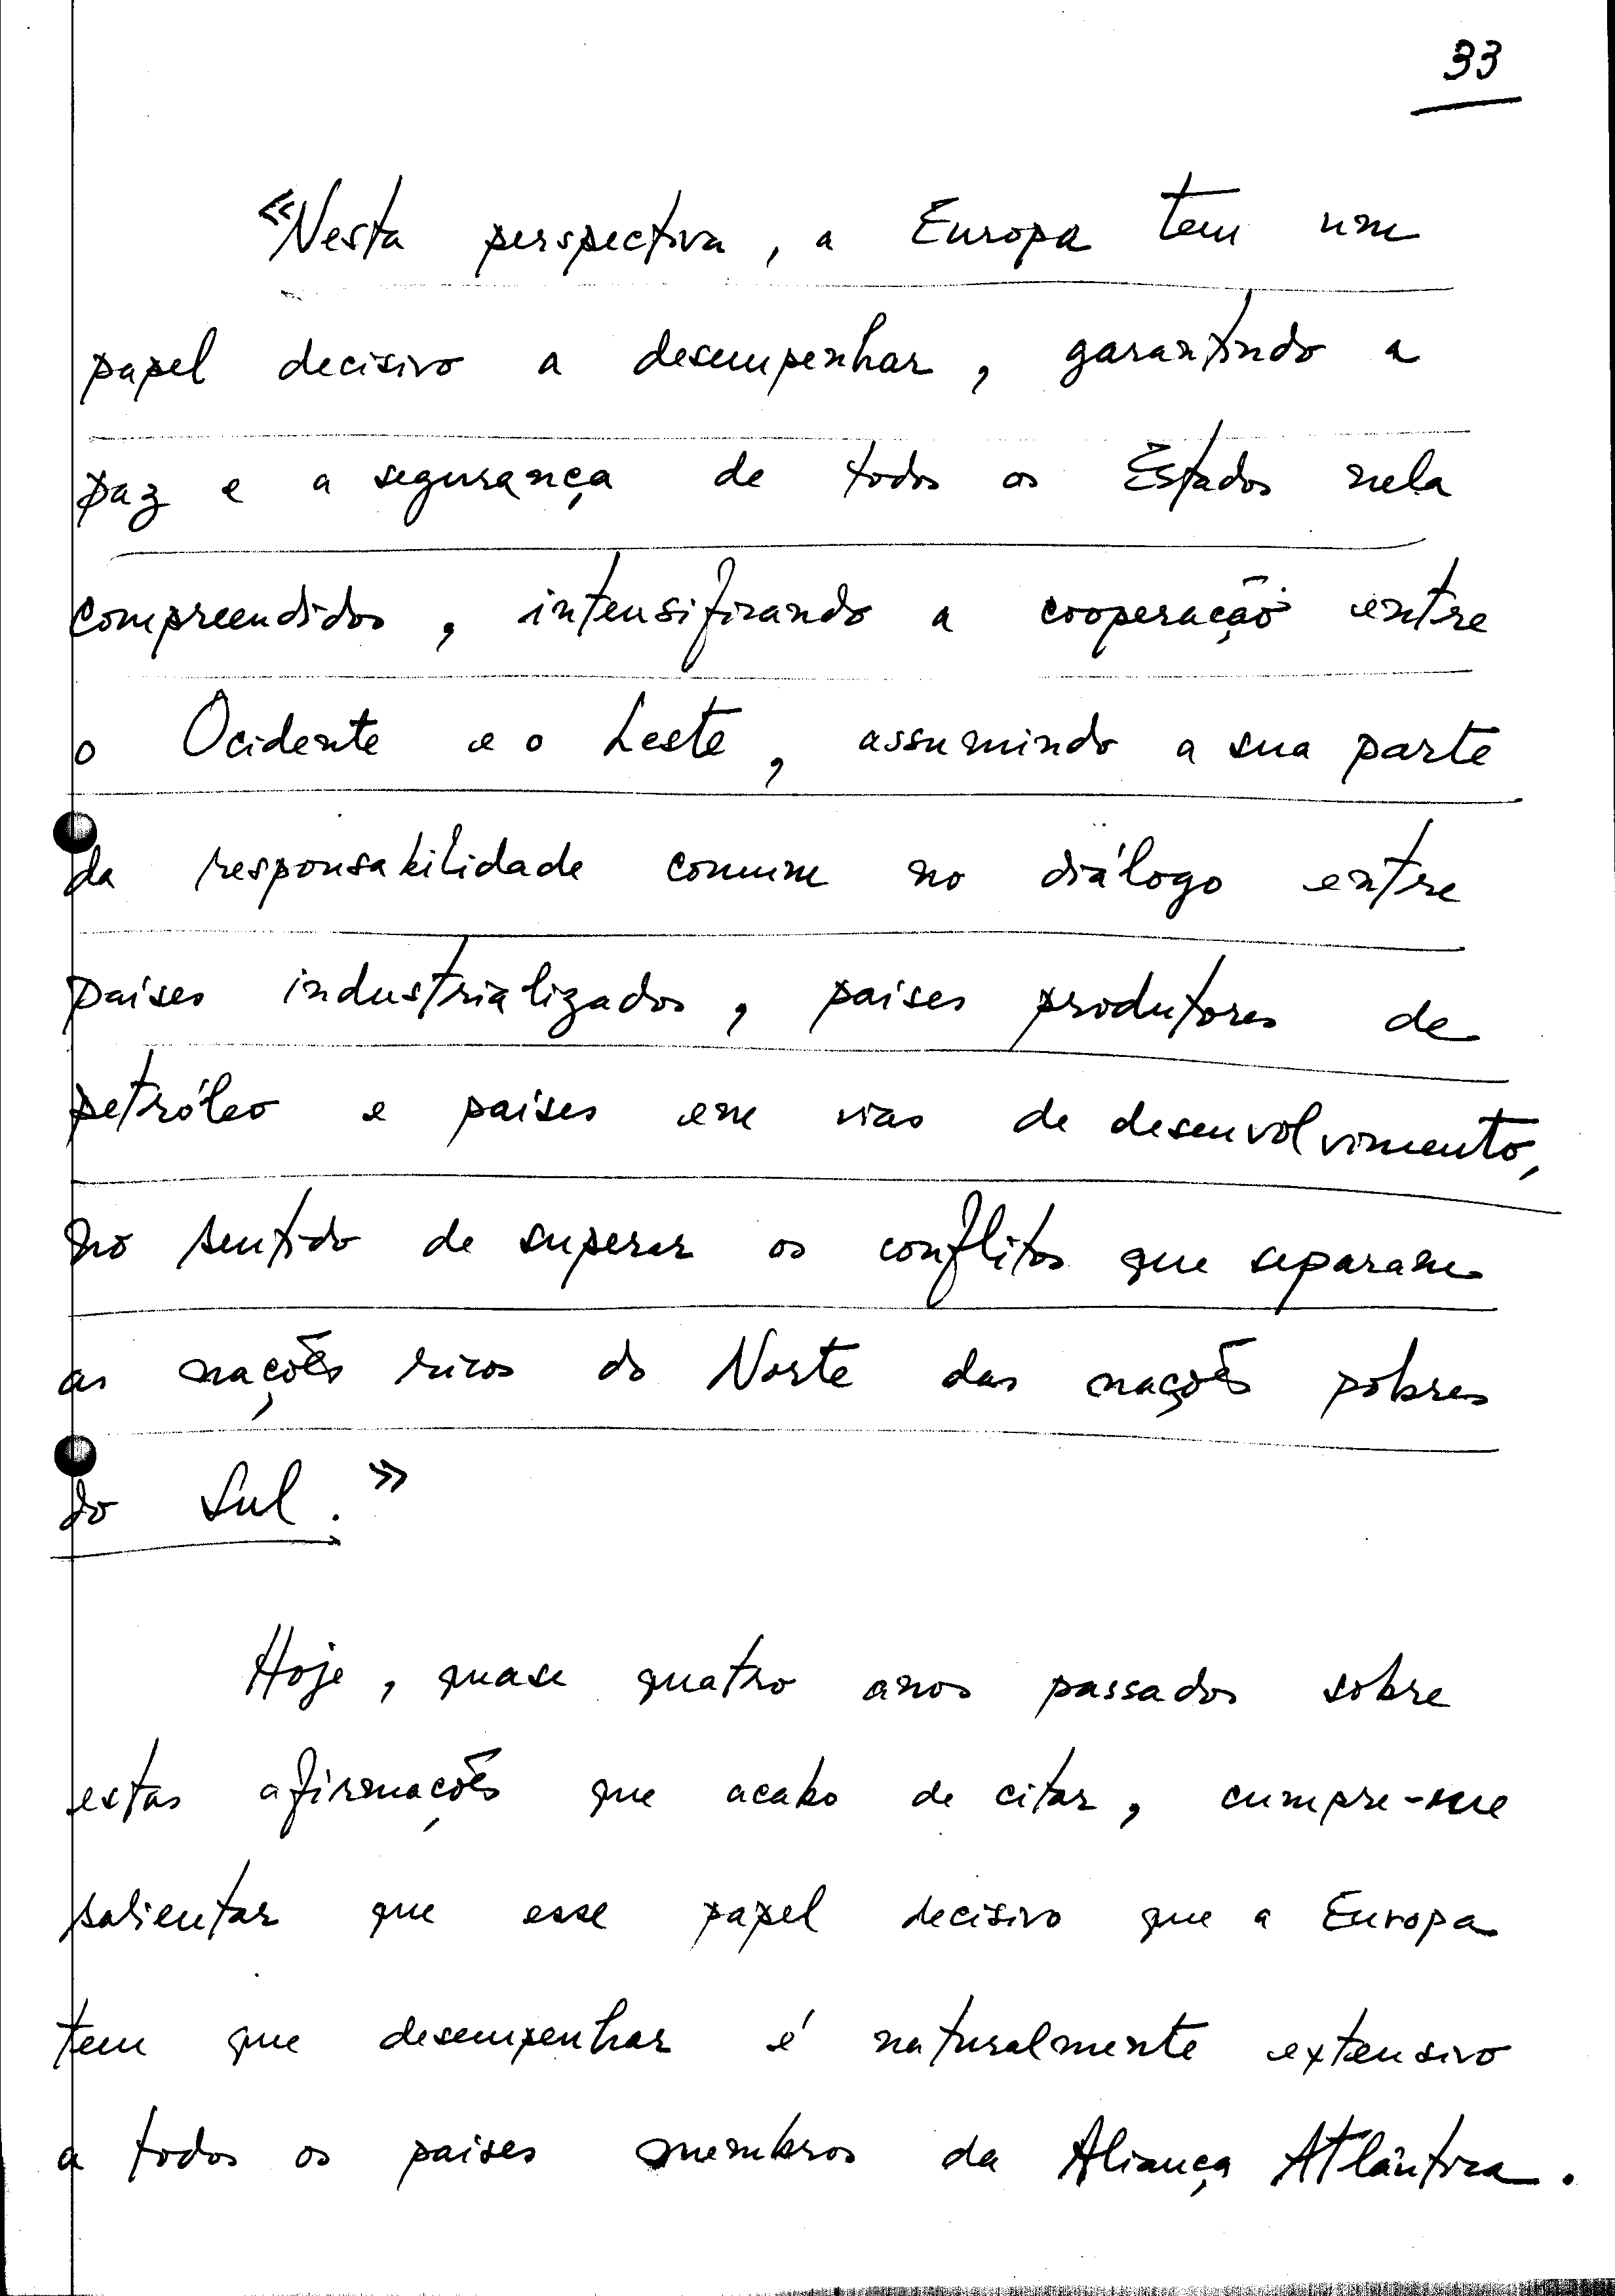 33
«Nesta perspectiva, a Europa tem um
papel decisivo a desempenhar, garantindo a
paz e a segurança de todos os Estados nela
compreendidos, intensificando a cooperação entre
o Ocidente e o Leste, assumindo a sua parte
da responsabilidade comum no diálogo entre
países industrializados, países produtores de
petróleo e países em vias de desenvolvimento,
no sentido de superar os conflitos que separam
as nações ricas do Norte das nações pobres
do Sul.»
Hoje, quase quatro anos passados sobre
estas afirmações que acabo de citar, cumpre-me
salientar que esse papel decisivo que a Europa
tem que desempenhar é naturalmente extensivo
a todos os países membros da Aliança Atlântica.